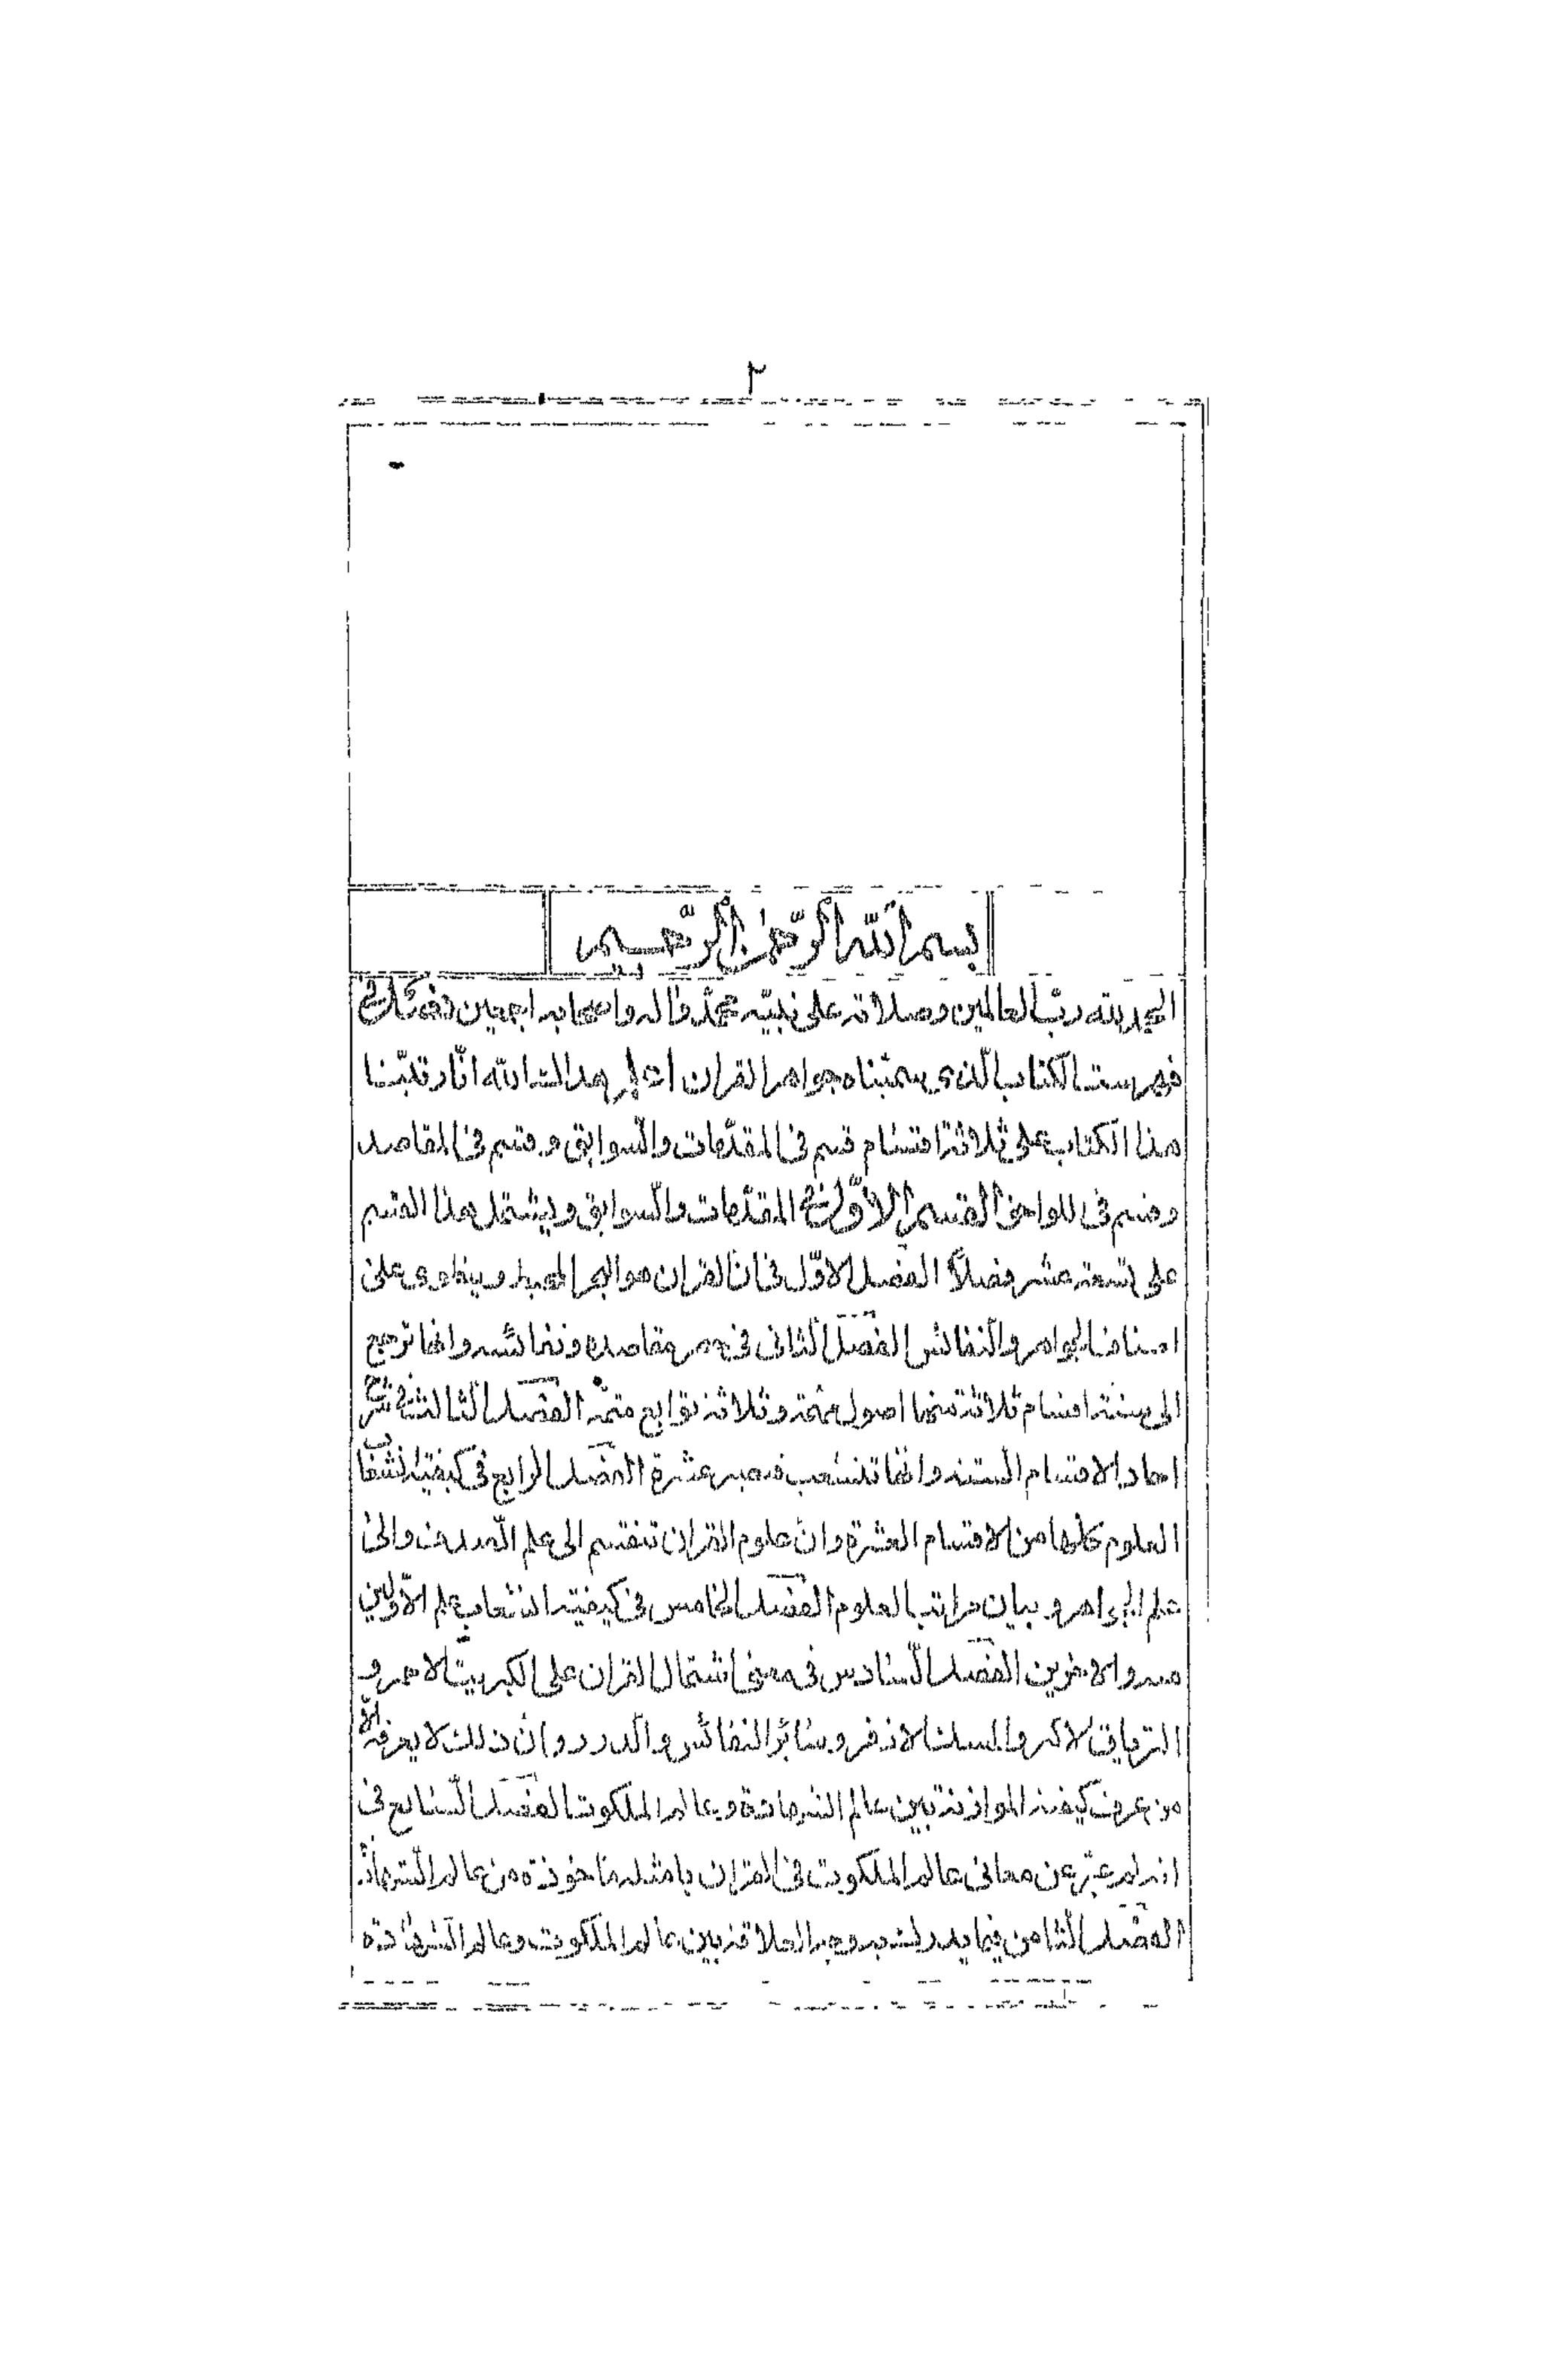 ٢
بسم الله الرّحمٰن الرّحيم
الحمد لله ربّ العالمين وصلاته على نبيّه محمّد واٰله واصحابه اجمعين فصل فى
فهرست الكتاب الّذى سميّناه جواهر القران اعلم هداك الله انّا رتبّنا
هذا الكتاب على ثلاثة اقسام قسم فى المقدّمات والسّوابق وقسم فى المقاصد
وقسم فى اللواحق القسم الاوّل فى المقدّمات والسّوابق ويشتمل هذا القسم
على تسعة عشر فصلاً الفصل الاوّل فى انّ القران هو البحر المحيط وينطوى على
اصناف الجواهر والنّفائس الفصل الثّانى فى حصر مقاصده ونفائسه وانها ترجع
الى ستّة اقسام ثلاثة منها اصول مهمّة وثلاثة توابع متمّة الفصل الثّالث فى شرح
احاد الاقسام السّتة وانّها تنشعب فتصير عشرة الفصل الرابع فى كيفيّة انشعاب
العلوم كلها من الاقسام العشرة وانّ علوم القران تنقسم الى علم الصّدف والى
علم الجواهر وبيان مراتب العلوم الفصل الخامس فى كيفيّة انشعاب علم الاوّلين
منه والاخرين الفصل السّادس فى معنى اشتمال القران على الكبريت الاحمر و
الترياق الاكبر والمسك الاذفر وسائر النفائس والدّرر وانّ ذلك لا يعرفه الّا
من عرف كيفية الموازنة بين عالم الشهادة وعالم الملكوت الفصل السّابع فى
انه لم عبّر عن معانى عالم الملكوت فى القران بامثلة ماخوذة من عالم الشّهادة
الفصل الثّامن فيما يدرك به وجه العلاقة بين عالم الملكوت وعالم الشّهادة